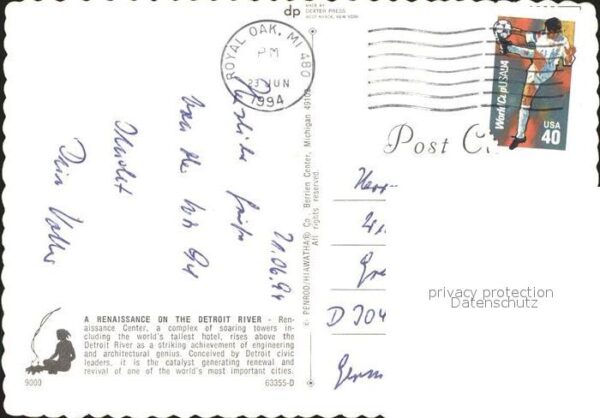 dp
MADE BY
DEXTER PRESS
WEST NYACK, NEW YORK
ROYAL OAK, MI 480
PM
23 JUN
1994
World Cup USA 94
USA
40
Post C
21.06.94
Herzliche Grüße
von der
Dein Vater
Herr
D 304
privacy protection
Datenschutz
© PENROD/HIAWATHA® Co., Berrien Center, Michigan 49102
All rights reserved.
A RENAISSANCE ON THE DETROIT RIVER - Ren-
aissance Center, a complex of soaring towers in-
cluding the world's tallest hotel, rises above the
Detroit River as a striking achievement of engineering
and architectural genius. Conceived by Detroit civic
leaders, it is the catalyst generating renewal and
revival of one of the world's most important cities.
9000
63355-D